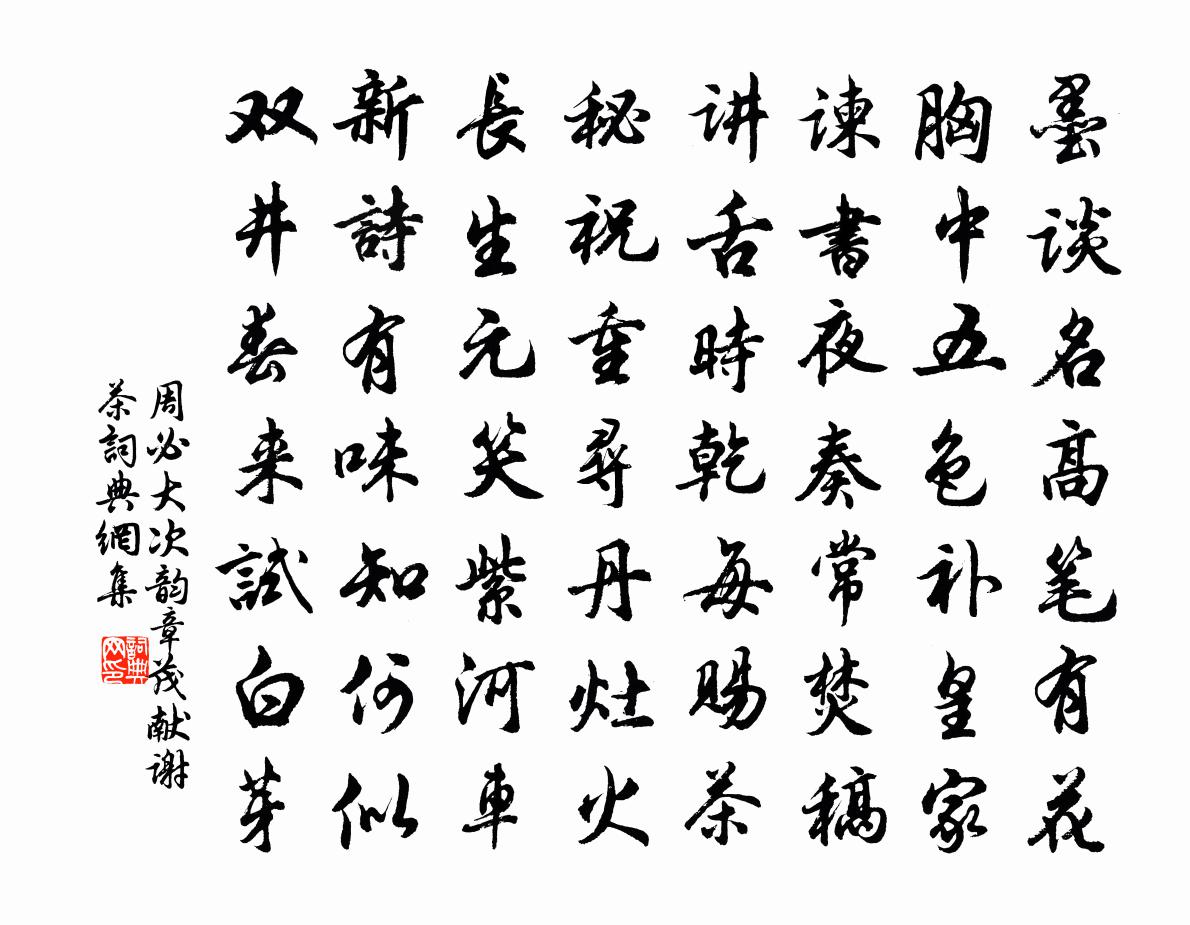 墨谈名高笔有花
胸中五色补皇家
谏書夜奏常焚稿
讲舌時乾每賜茶
秘祝重尋丹灶火
長生元笑紫河車
新詩有味知何似
双井春来試白芽
周必大次韵章茂献谢
茶詞典網集
詞典网印